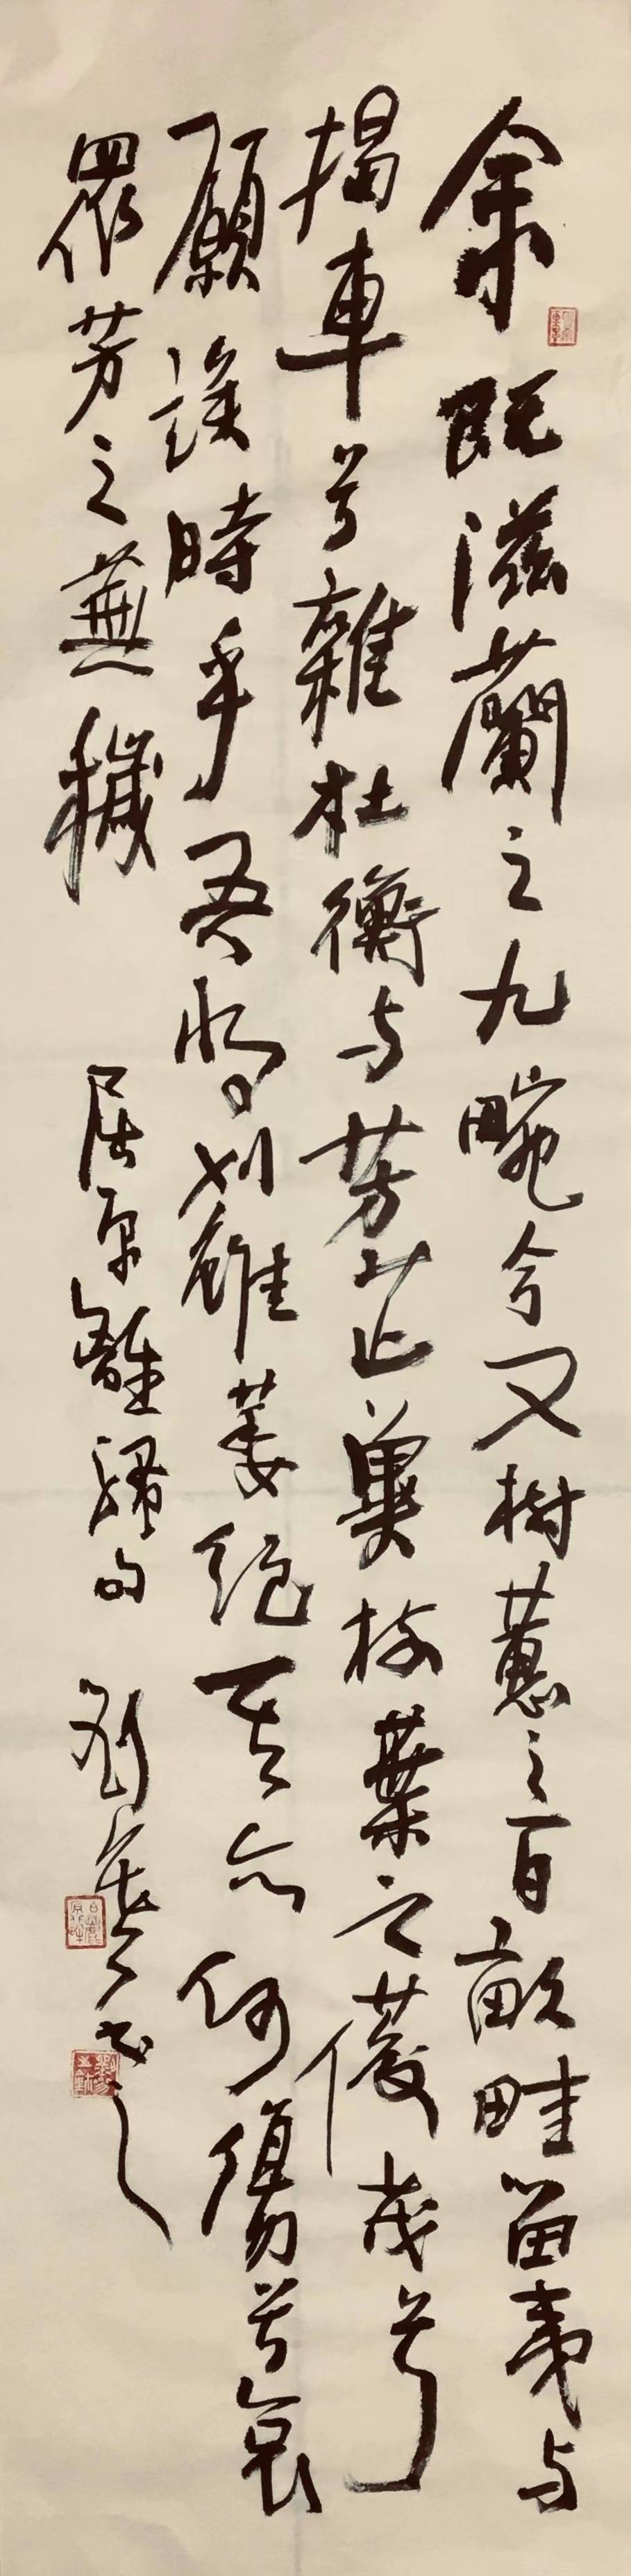 余既滋蘭之九畹兮又樹蕙之百畝畦留夷与
揭車兮雜杜衡与芳芷冀枝葉之葰茂兮
願竢時乎吾將刈雖萎絕其亦何傷兮哀
眾芳之蕪穢 屈原離騷句 劉 書之